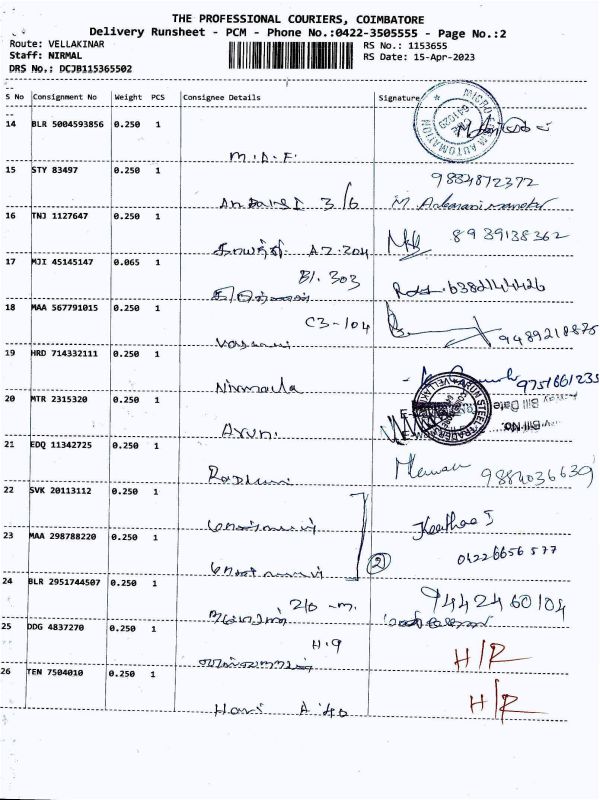 THE PROFESSIONAL COURIERS, COIMBATORE
Delivery Runsheet - PCM - Phone No.:0422-3505555 - Page No.:2
Route: VELLAKINAR
RS No.: 1153655
Staff: NIRMAL
RS Date: 15-Apr-2023
DRS No.: DCJB115365502
S No Consignment No Weight PCS Consignee Details Signature
14 BLR 5004593856 0.250 1
M.D.F.
MICRO AUTOMATION
15 STY 83497 0.250 1
9884872372
3/6
16 TNJ 1127647 0.250 1
காயத்ரி A2-204
8939138362
17 MJI 45145147 0.065 1
B1.303
6382144426
18 MAA 567791015 0.250 1
C3-104
9489218875
19 HRD 714332111 0.250 1
Nirmala
9751661235
20 MTR 2315320 0.250 1
Arun.
ARUN STEEL TRADERS
Bill Date
Bill No.
21 EDQ 11342725 0.250 1
9884036639
22 SVK 20113112 0.250 1
Keerthae J
23 MAA 298788220 0.250 1
21
04226656577
24 BLR 2951744507 0.250 1
210-m.
9442460104
25 DDG 4837270 0.250 1
H.9
H/R
26 TEN 7504010 0.250 1
Hari A 40
H/R